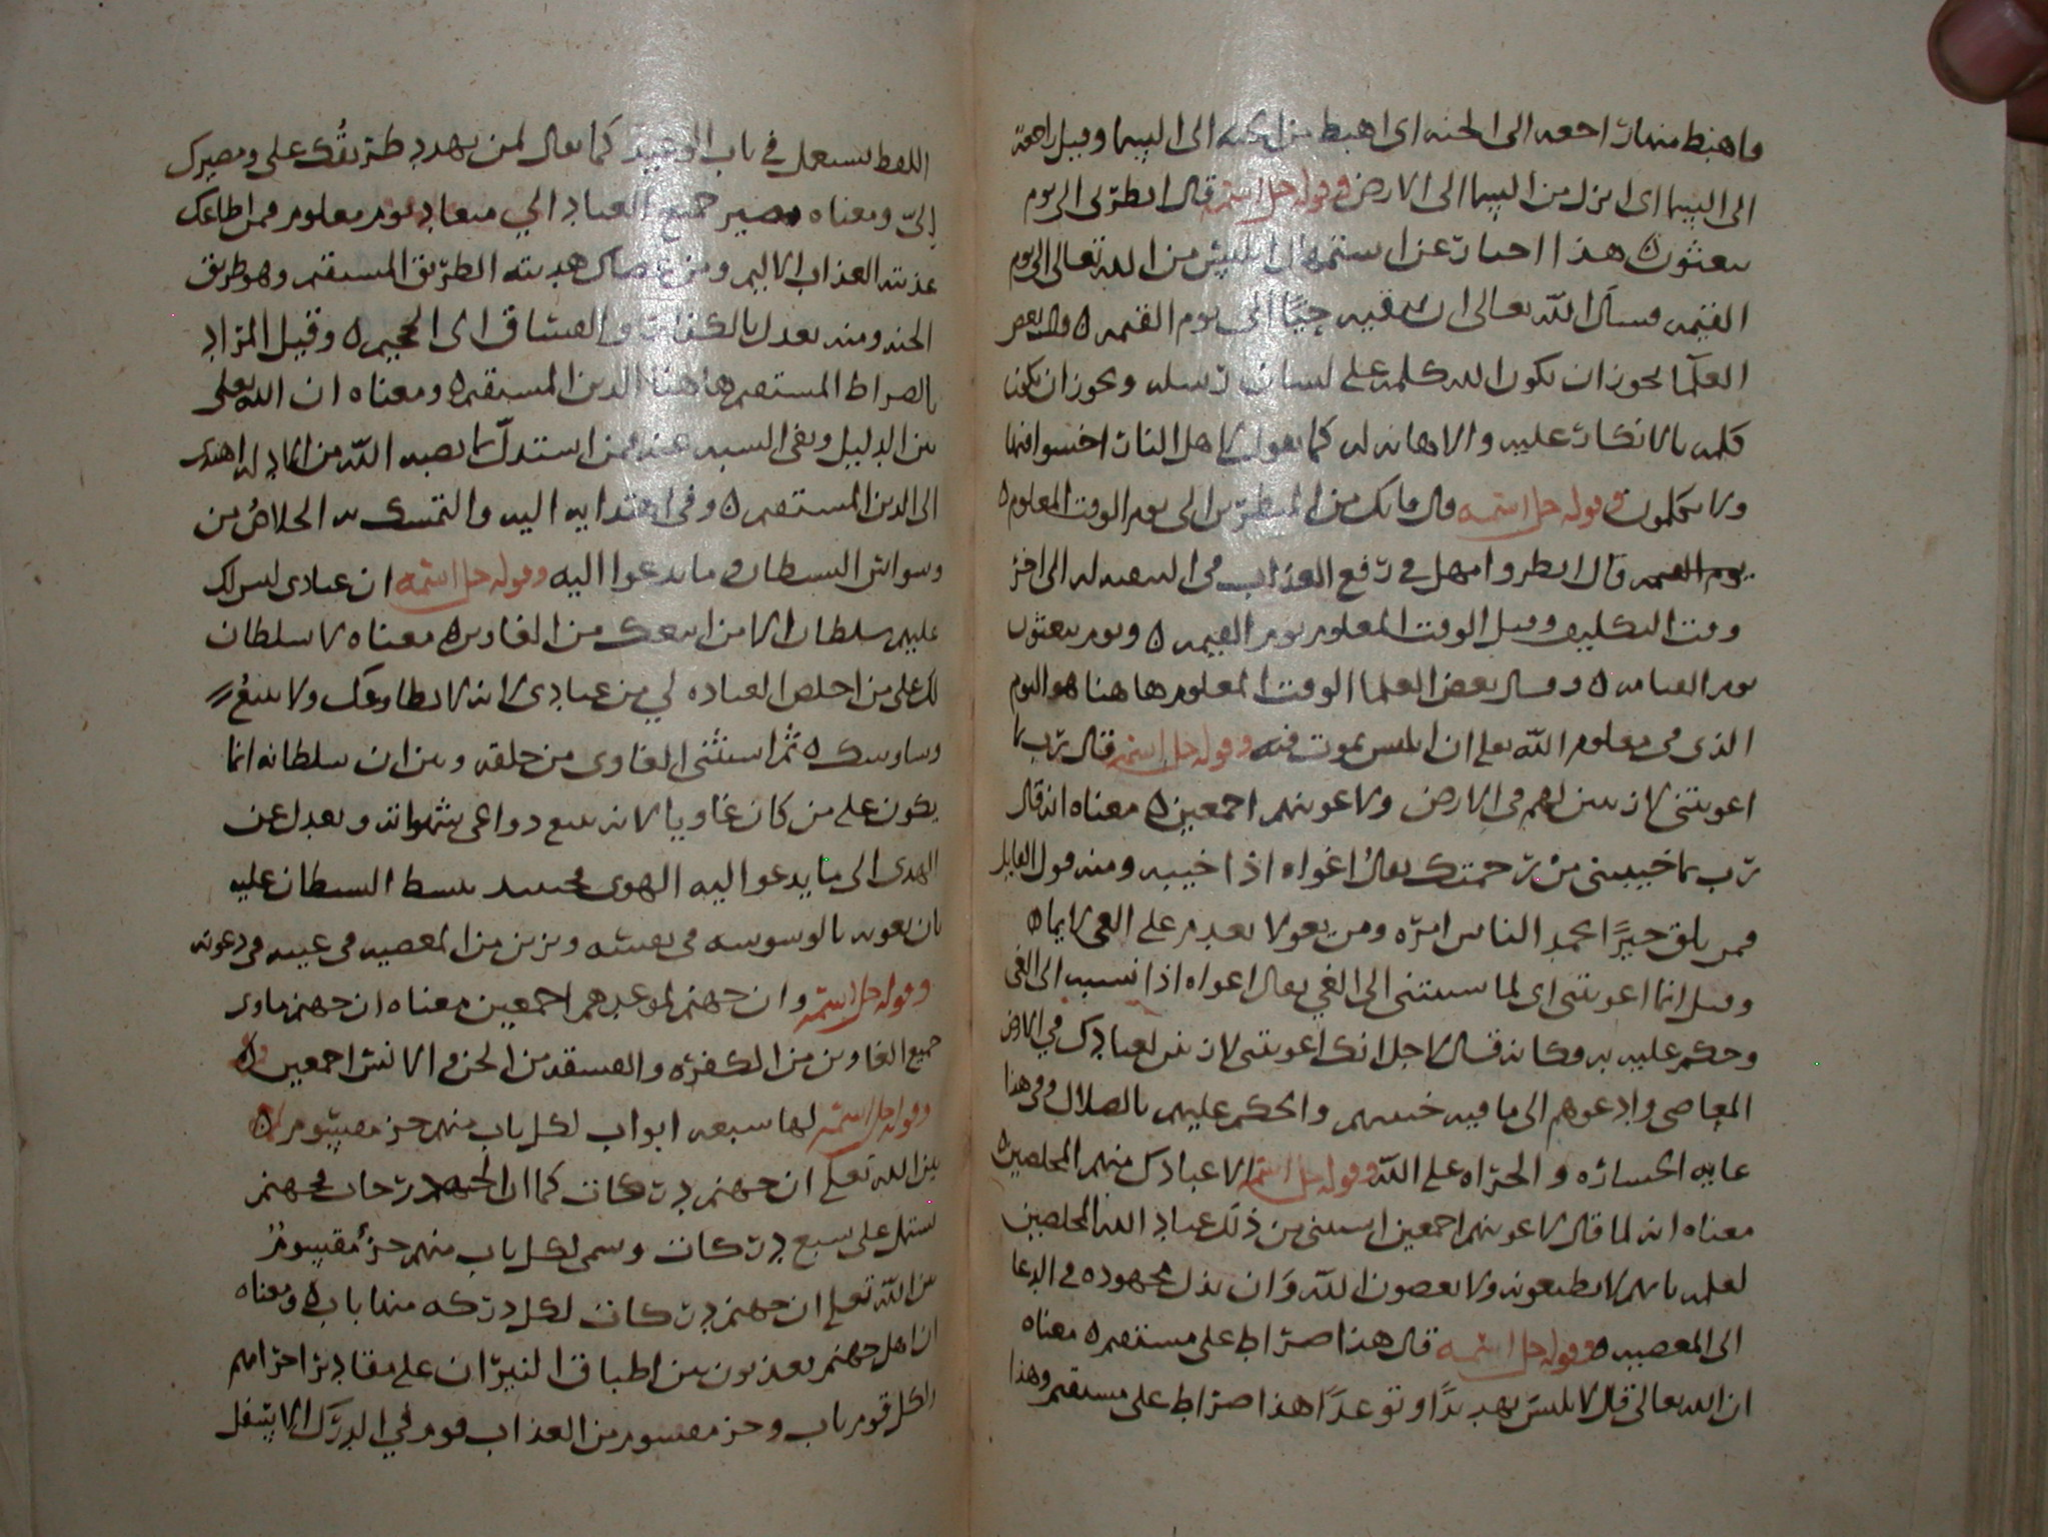 فاهبط منها راجعه الى الجنه اى اهبط من الجنه الى السما وقيل راجعة
الى السما اى انزل من السما الى الارض وقوله جل اسمه قال انظرنى الى يوم
يبعثون ه هذا اخبار عن استمهال ابليس من الله تعالى الى يوم
القيمه فسأل الله تعالى ان يبقيه حيًا الى يوم القيمه ه قال بعض
العلما يجوز ان يكون الله كلمه على لسان رسله ويجوز ان يكون
كلمه بالانكار عليه والاهانه له كما يقول لاهل النار اخسوا فيها
ولا تكلمون وقوله جل اسمه قال فانك من المنظرين الى يوم الوقت المعلوم ه
قال انظر وامهل فى رفع العذاب الى اخر
وقت التكليف وقيل الوقت المعلوم يوم القيمه ه ويوم يبعثون
يوم القيامه ه وقال بعض العلما الوقت المعلوم هاهنا هو اليوم
الذى فى معلوم الله تعلى ان ابليس يموت فيه وقوله جل اسمه قال رب بما
اغويتنى لازينن لهم فى الارض ولاغوينهم اجمعين ه معناه انه قال
رب بما خيبتنى من رحمتك يقال اغواه اذا خيبه ومنه قول القايل
فمن يلق خيرًا يحمد الناس امره ومن يغو لا يعدم على الغى لايما ه
وقيل انما اغويتنى اى لما نسبتنى الى الغي يقال اغواه اذا نسبه الى الغى
وحكم عليه به فكانه قال لاجل انك اغويتنى لازينن لعبادك في الارض
المعاصى وادعوهم الى ما فيه خيبتهم والحكم عليهم بالضلال وفى هذا
غايه الخساره والجراه على الله وقوله جل اسمه الا عبادك منهم المخلصين ه
معناه انه لما قال لاغوينهم اجمعين استثنى من ذلك عباد الله المخلصين
لعلمه بانهم لا يطيعونه ولا يعصون الله وان بذل مجهوده فى الدعا
الى المعصيه ه وقوله جل اسمه قال هذا صراط على مستقيم ه معناه
ان الله تعالى قال لابليس تهديدًا وتوعدًا هذا صراط على مستقيم وهذا
اللفظ يستعمل في باب الوعيد كما يقال لمن يهدد طريقُك على ومصيرك
إلىّ ومعناه مصير جميع العباد الي ميعاد يوم معلوم فمن اطاعك
عذبته العذاب الاليم ومن عصاك هديته الطريق المستقيم وهو طريق
الجنه ومنه يعدل بالكفار والفساق الى الجحيم ه وقيل المراد
بالصراط المستقيم هاهنا الدين المستقيم ه ومعناه ان الله تعلى
بين الدليل ونفى الشبه عنه فمن استدل بما نصبه الله من الادله اهتدى
الى الدين المستقيم ه وفى اهتدايه اليه والتمسك به الخلاصُ من
وسواس الشيطان وما يدعوا اليه وقوله جل اسمه ان عبادى ليس لك
عليهم سلطان الا من اتبعك من الغاوين ه معناه لا سلطان
لك على من اخلص العباده لي من عبادى لانه لا يطاوعك ولا يتبع
وساوسك ه ثم استثنى الغاوى من خلقه وبين ان سلطانه انما
يكون على من كان غاويا لانه يتبع دواعى شهواته ويعدل عن
الهدى الى ما يدعو اليه الهوى فحينيذ يتسلط الشيطان عليه
بان يغويه بالوسوسه فى نفسه ويزين من المعصيه فى عينه فى دعوته
وقوله جل اسمه وان جهنم لموعدهم اجمعين معناه ان جهنم ماوى
جميع الغاوين من الكفره والفسقه من الجن والانس اجمعين ه
وقوله جل اسمه لها سبعه ابواب لكل باب منهم جز مقسوم ه
بين الله تعلى ان جهنم دركات كما ان الجنه درجات فجهنم
تشتمل على سبع دركات وسمى لكل باب منهم جزُ مقسومُ
بين الله تعلى ان جهنم دركات لكل دركه منها باب ه ومعناه
ان اهل جهنم يعذبون بين اطباق النيران على مقادير اجرامهم
ولكل قوم باب وجز مقسوم من العذاب قوم في الدرك الاسفل